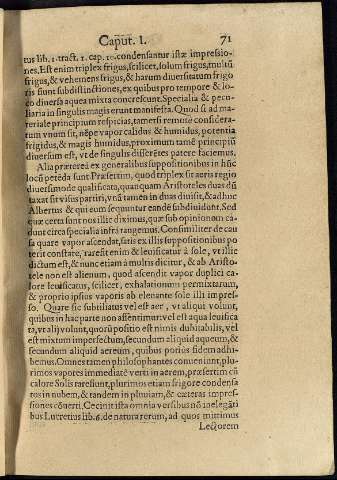 Caput. I. 71
tus lib. 1. tract. 1. cap. 10. condensantur istæ impressio-
nes. Est enim triplex frigus, scilicet, solum frigus, multũ
frigus, & vehemens frigus, & harum diuersitatum frigo
ris sunt subdistinctiones, ex quibus pro tempore & lo-
co diuersa aquea mixta concrescunt. Specialia & pecu
liaria in singulis magis erunt manifesta. Quod si ad ma-
teriale principium respicias, tametsi remotè considera-
tum vnum sit, nẽpe vapor calidus & humidus, potentia
frigidus, & magis humidus, proximum tamẽ principiũ
diuersum est, vt de singulis differẽtes patere faciemus.
Alia prætereà ex generalibus suppositionibus in hũc
locũ petẽda sunt. Præsertim, quod triplex sit aeris regio
diuersimode qualificata, quanquam Aristoteles duas dũ
taxat sit visus partiri, vnã tamen in duas diuisit, & ad hoc
Albertus & qui eum sequuntur eandẽ subdiuidunt. Sed
quæ certa sunt nos illic diximus, quæ sub opinionem ca
dunt circa specialia infrà tangemus. Consimiliter de cau
sa quare vapor ascendat, satis ex illis suppositionibus po
terit constare, rarefit enim & leuificatur à sole, vt illic
dictum est, & nunc etiam à multis dicitur, & ab Aristo-
tele non est alienum, quod ascendit vapor duplici ca-
lore leuificatus, scilicet, exhalationum permixtarum,
& proprio ipsius vaporis ab elenante sole illi impres-
so. Quare sic subtiliatus vel est aer, vt aliqui volunt,
quibus in hac parte non assentimur: vel est aqua leuifica
ta, vt alij volunt, quorũ positio est nimis dubitabilis, vel
est mixtum imperfectum, secundum aliquid aqueum, &
secundum aliquid aereum, quibus potiùs fidem adhi-
bemus. Omnes tamen philosophantes conueniunt, plu-
rimos vapores immediatè verti in aerem, præsertim cũ
calore Solis rarefiunt, plurimos etiam frigore condensa
tos in nubem, & tandem in pluuiam, & cæteras impres-
siones cõuerti. Cecinit ista omnia versibus nõ inelegãti
bus Lutretius lib. 6. de natura rerum, ad quos mittimus
Lectorem